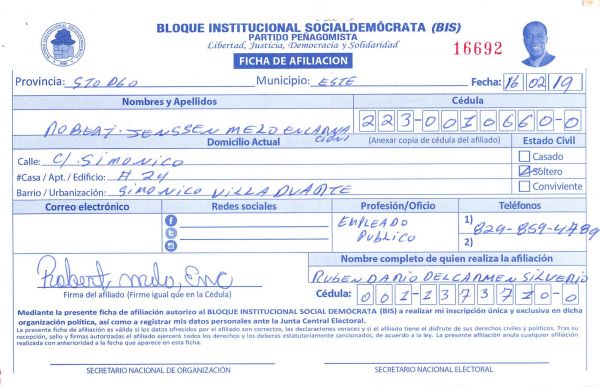 BLOQUE INSTITUCIONAL SOCIALDEMÓCRATA (BIS)
PARTIDO PEÑAGOMISTA
Libertad, Justicia, Democracia y Solidaridad
FICHA DE AFILIACION
16692
Provincia: STO DGO Municipio: ESTE Fecha: 16 02 19
Nombres y Apellidos Cédula
ROBERT JENSSEN MELO ENCARNACION 223-0010660-0
Domicilio Actual (Anexar copia de cédula del afiliado) Estado Civil
Calle: C/ SIMONICO Casado
#Casa / Apt. / Edificio: # 24 Soltero
Barrio / Urbanización: SIMONICO VILLA DUARTE Conviviente
Correo electrónico Redes sociales Profesión/Oficio Teléfonos
EMPLEADO PUBLICO 1) 829-859-4789
2)
Robert, melo, Enc
Firma del afiliado (Firme igual que en la Cédula)
Nombre completo de quien realiza la afiliación
RUBEN DARIO DEL CARMEN SILVERIO
Cédula: 001-1373710-0
Mediante la presente ficha de afiliación autorizo al BLOQUE INSTITUCIONAL SOCIAL DEMÓCRATA (BIS) a realizar mi inscripción única y exclusiva en dicha
organización política, así como a registrar mis datos personales ante la Junta Central Electoral.
La presente ficha de afiliación es válida si los datos ofrecidos por el afiliado son correctos, las declaraciones veraces y si el afiliado tiene el disfrute de sus derechos civiles y políticos. Tras su
recepción, sello y firmas autorizadas el afiliado ejercerá todos los derechos y los deberes estatutariamente sancionados, de acuerdo a la ley. La presente afiliación anula cualquier afiliación
realizada con anterioridad a la fecha que aparece en esta ficha.
SECRETARIO NACIONAL DE ORGANIZACIÓN SECRETARIO NACIONAL ELECTORAL